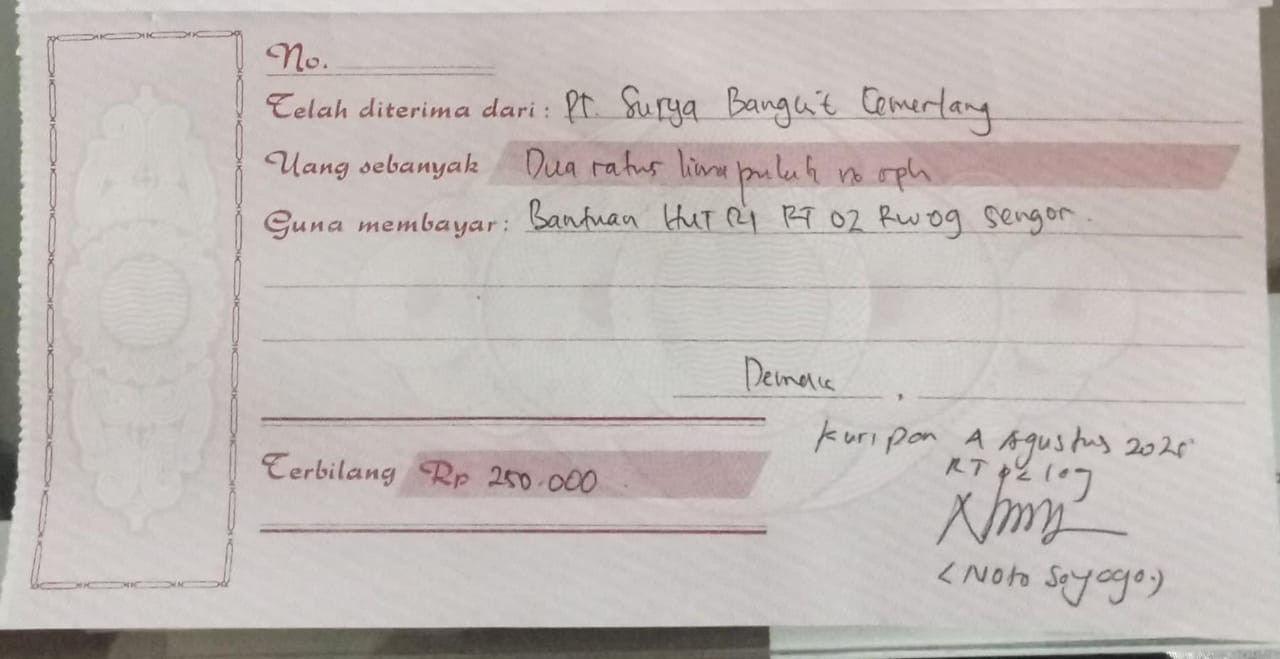 No.
Telah diterima dari : PT. Surya Bangkit Cemerlang
Uang sebanyak Dua ratus lima puluh
Guna membayar : Bantuan HUT RI RT 02 RW 09 Sengon.
Demak ,
Kuripan 4 Agustus
Terbilang Rp 250.000
RT 02 / 09
(Noto Soyogo.)